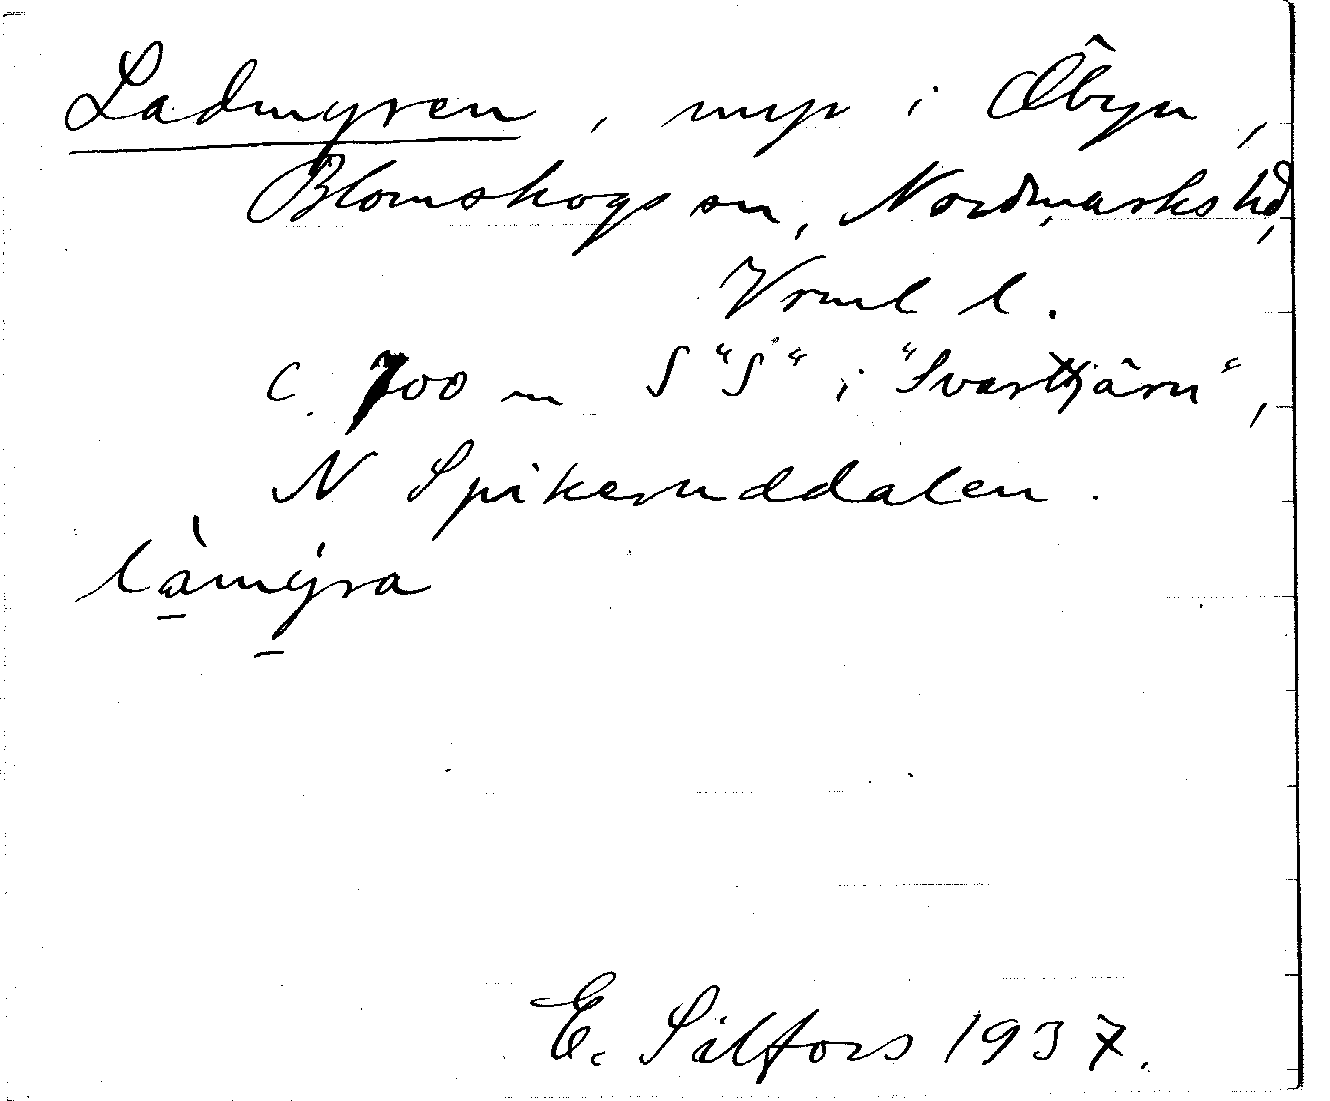 Ladmyren, myr i Åbyn,
Blomskogs sn, Nordmarks hd,
Vrml l.
c. 700 m S "S" i "Svarttjärn",
N Spikeruddalen.
là̱mẏ̱ra
E. Sälfors 1937.